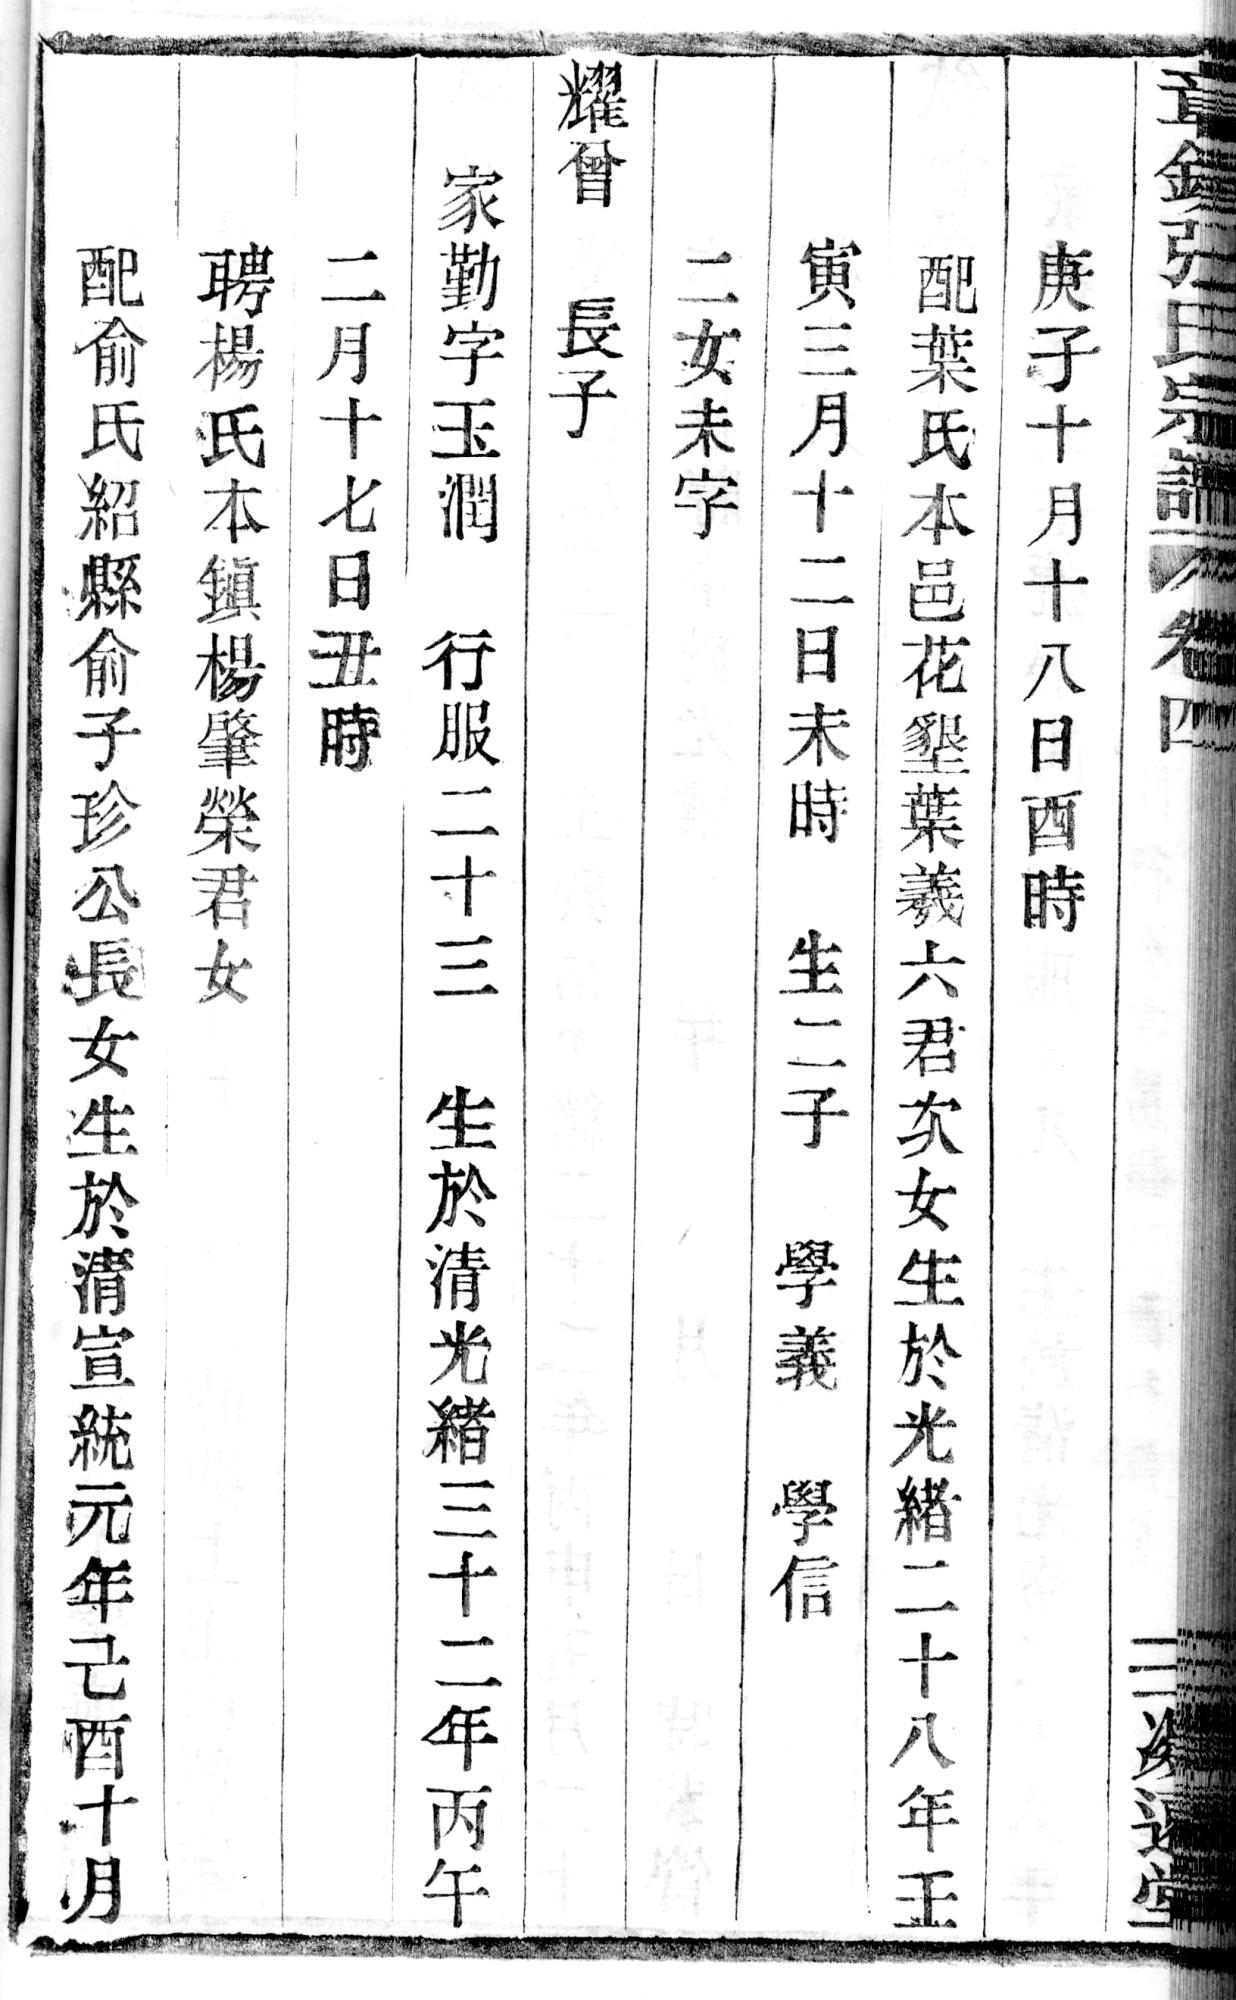 章鎮張氏宗譜 卷四 二 追遠堂
庚子十月十八日酉時
配葉氏本邑花墾葉羲六君次女生於光緒二十八年壬
寅三月十二日未時 生二子 學義 學信
二女未字
耀曾 長子
家勤字玉潤 行服二十三 生於清光緒三十二年丙午
二月十七日丑時
聘楊氏本鎮楊肇榮君女
配俞氏紹縣俞子珍公長女生於清宣統元年己酉十月